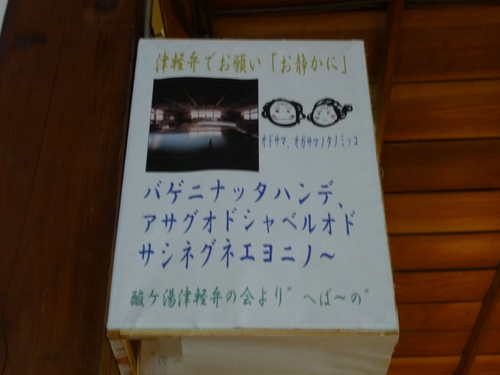 津軽弁でお願い「お静かに」
オドサマ、オガサマノタノミッコ
バゲニナッタハンデ、
アサグオドシャベルオド
サシネグネエヨニノ〜
酸ケ湯津軽弁の会より〃へば〜の〃